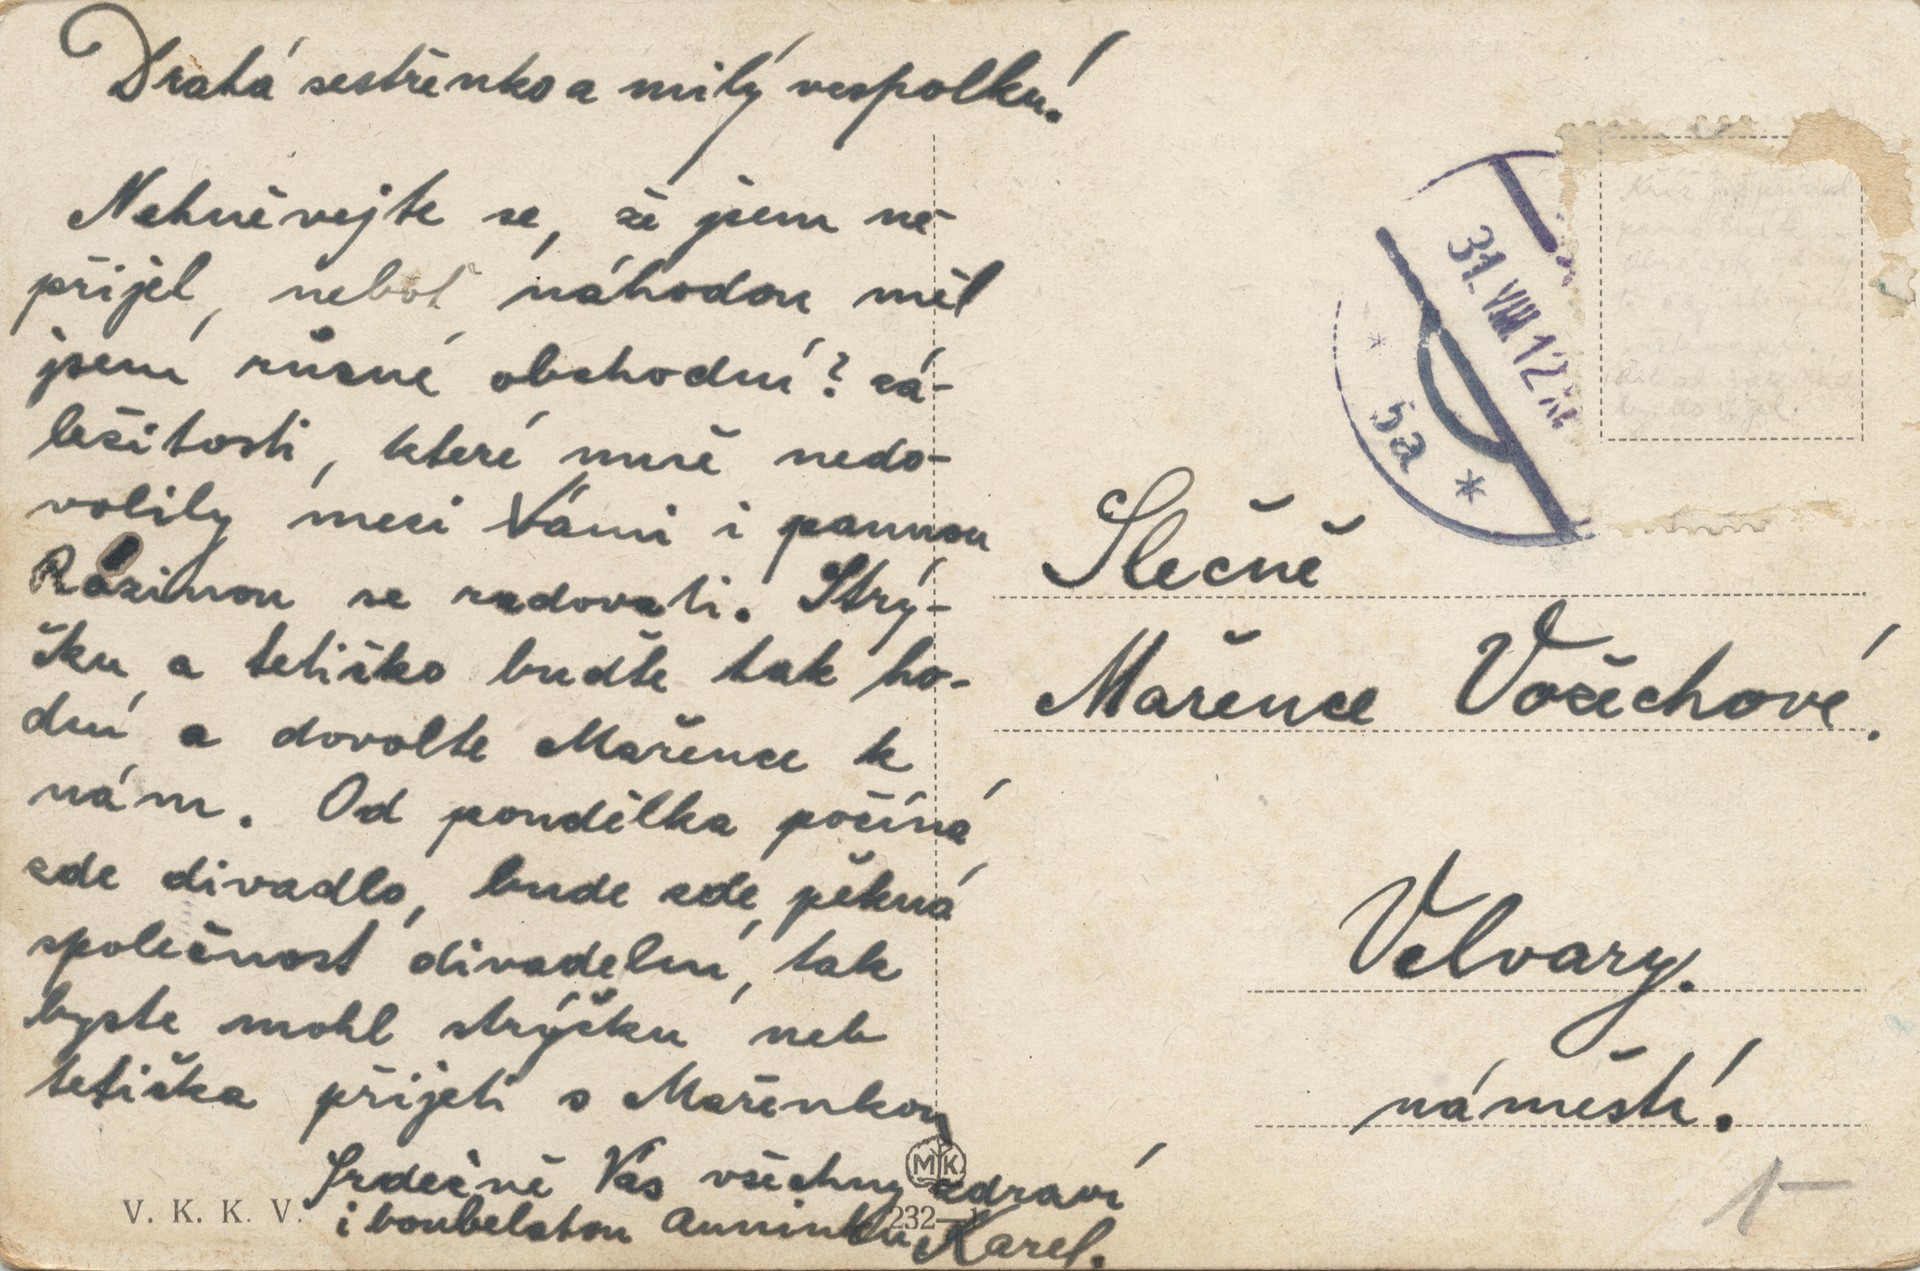 Drahá sestřenko a milý vespolku!
Nehněvejte se, že jsem ne-
přijel, neboť náhodou měl
jsem různé obchodní? zá-
ležitosti, které mně nedo-
volily mezi Vámi i pannou
Rózinou se radovati. Strý-
čku a tetičko buďte tak ho-
dní a dovolte Mařence k
nám. Od pondělka počíná
zde divadlo, bude zde pěkná
společnost divadelní, tak
byste mohl strýčku neb
tetička přijeti s Mařenkou
Srdečně Vás všechny zdraví
i boubelatou Anninku Karel.
V. K. K. V.
MK
232—1
31. VIII 12
5a
Slečně
Mařence Vožechové.
Velvary.
náměstí!
1-